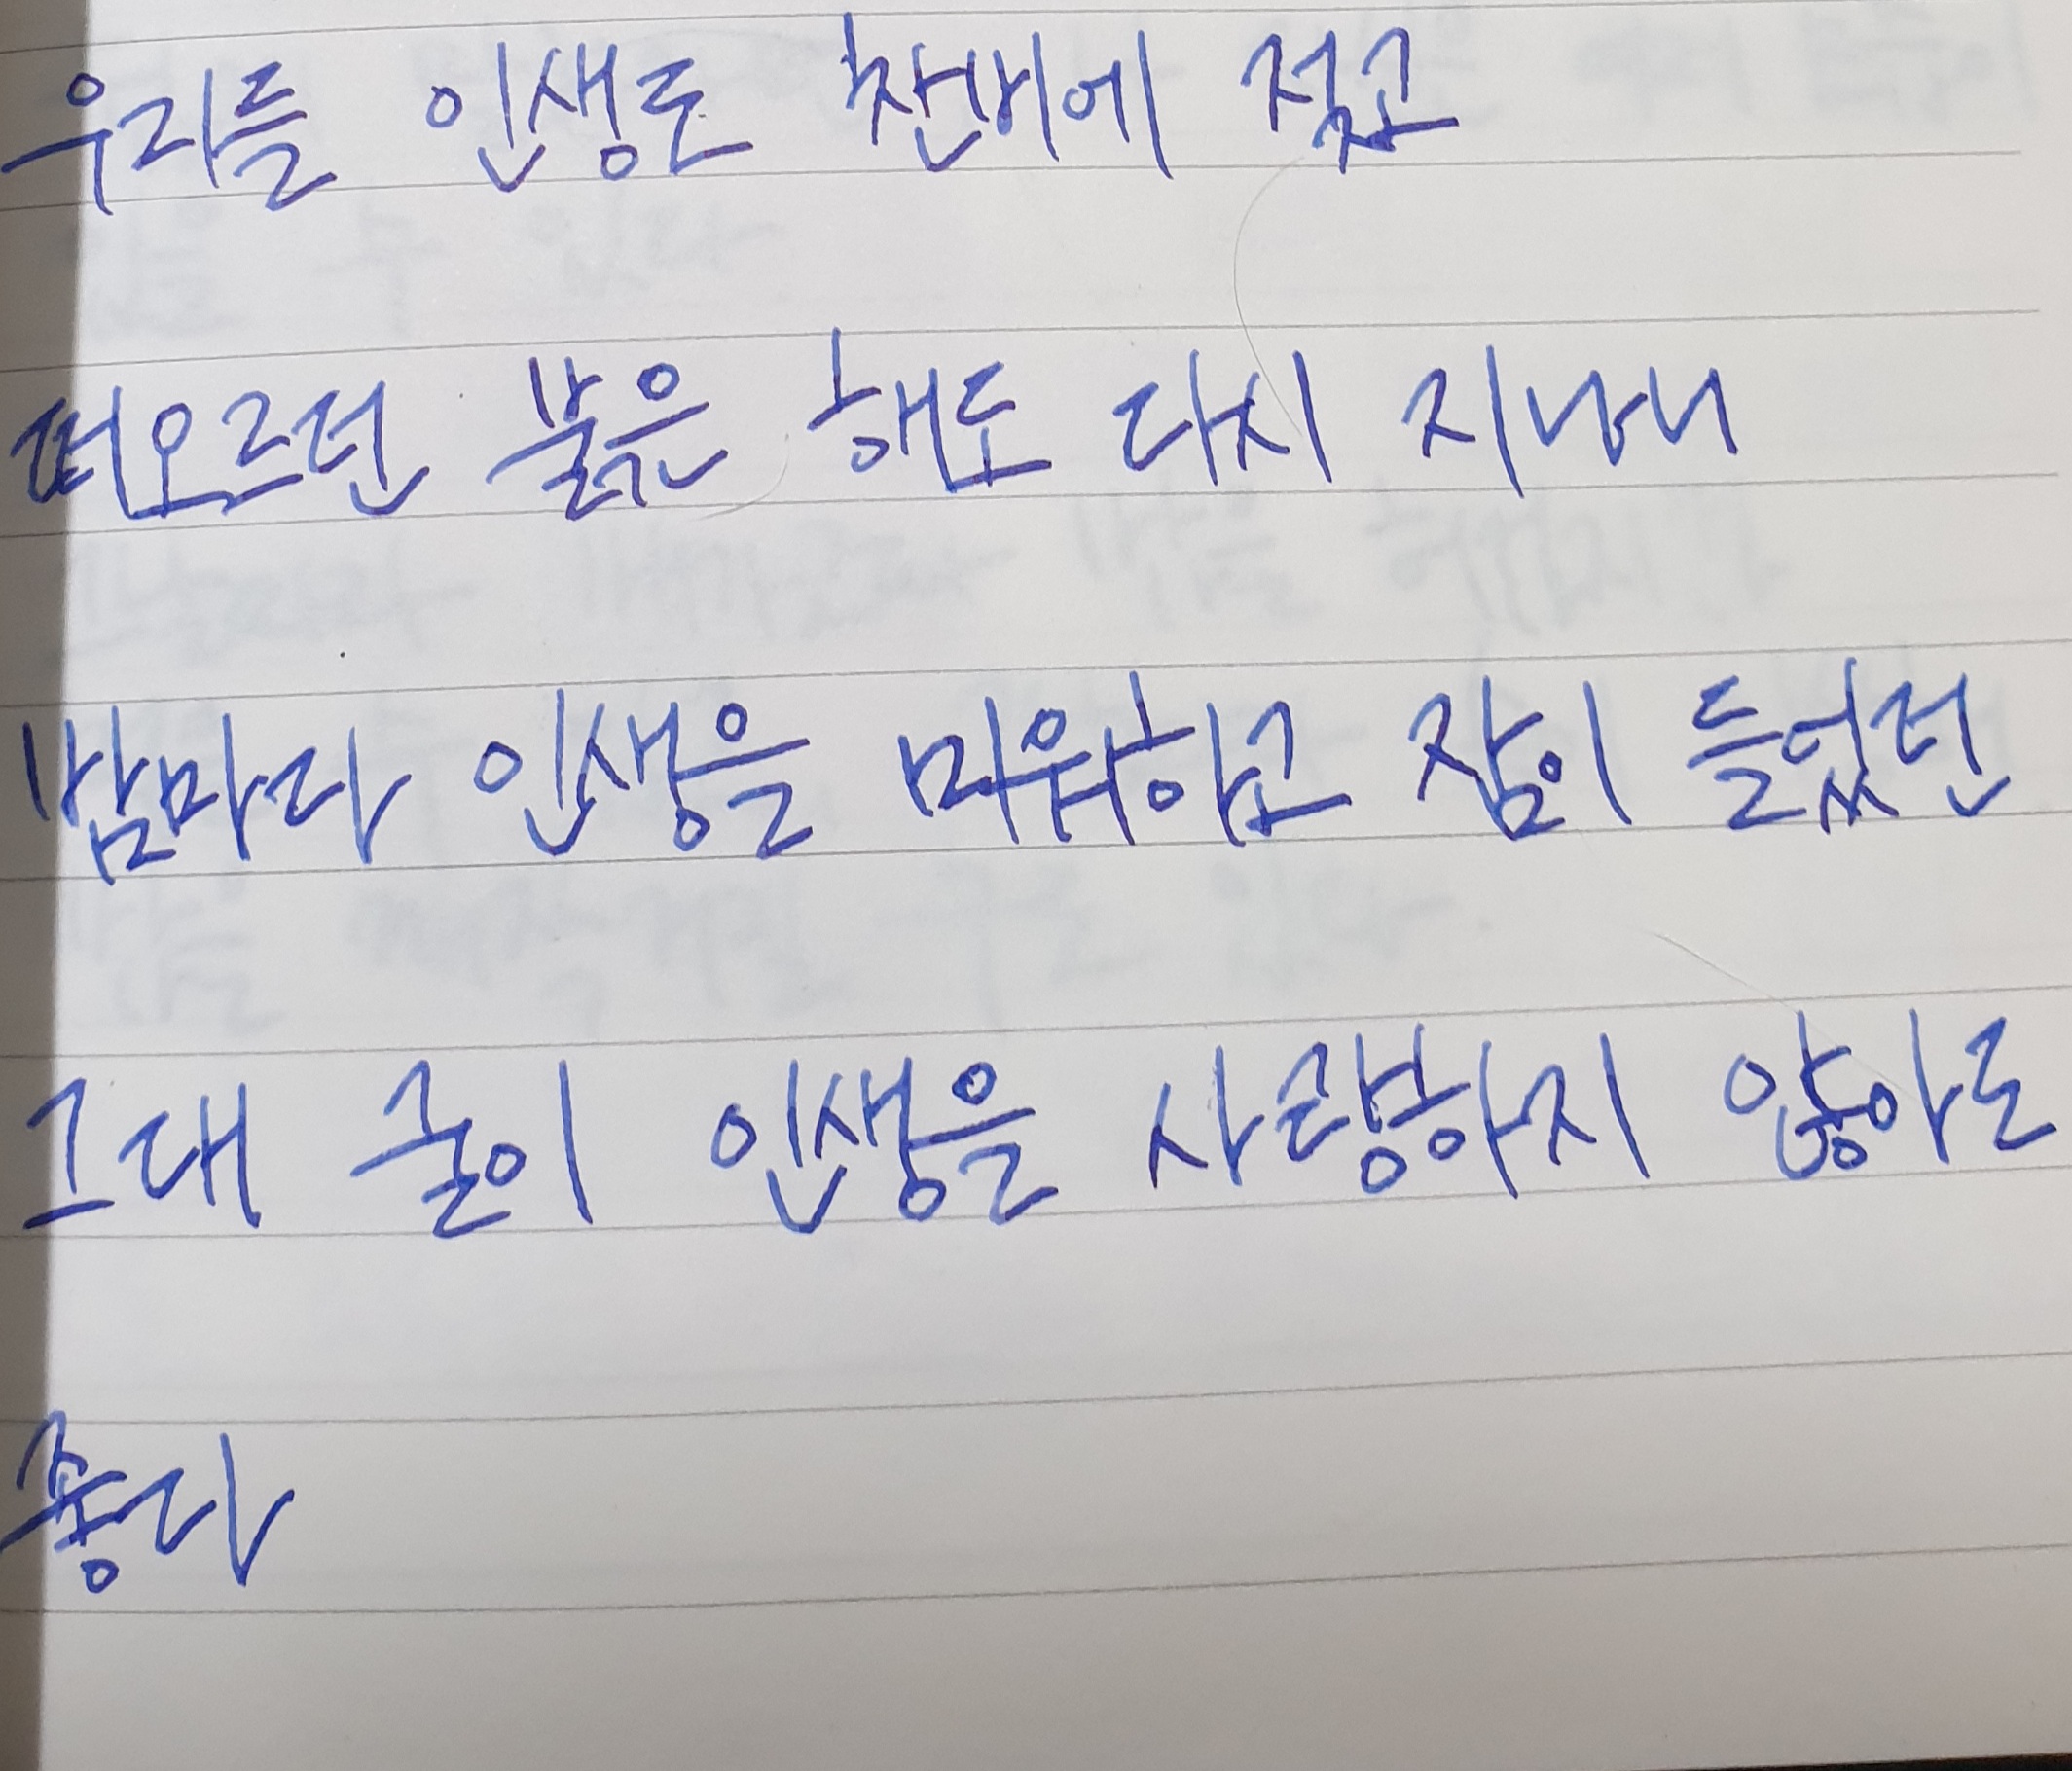 우리들 인생도 찬비에 젖고
떠오르던 붉은 해도 다시 지나니
밤마다 인생을 미워하고 잠이 들었던
그대 굳이 인생을 사랑하지 않아도
좋다